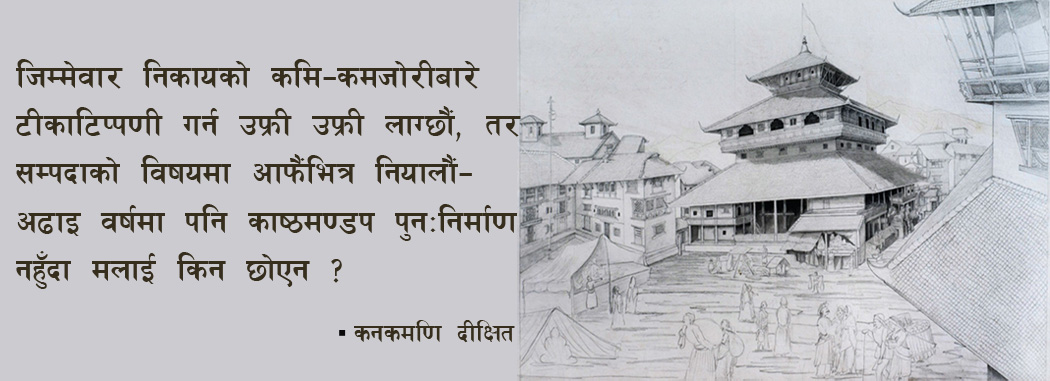 जिम्मेवार निकायको कमि-कमजोरीबारे
टीकाटिप्पणी गर्न उफ्री उफ्री लाग्छौं, तर
सम्पदाको विषयमा आफैंभित्र नियालौं-
अढाइ वर्षमा पनि काष्ठमण्डप पुनःनिर्माण
नहुँदा मलाई किन छोएन ?
▪ कनकमणि दीक्षित